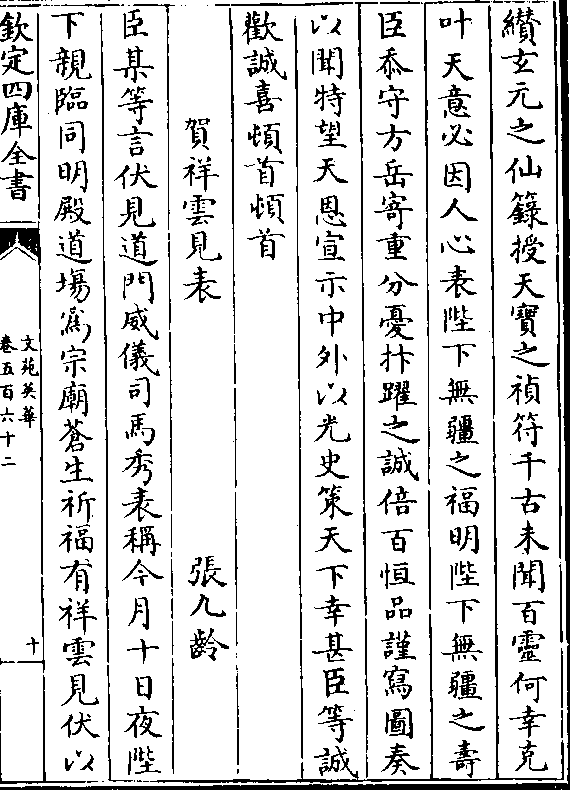 纉玄元之仙籙授天寶之禎符千古未聞百靈何幸克
叶天意必因人心表陛下無疆之福明陛下無疆之壽
臣忝守方岳寄重分憂抃躍之誠倍百恒品謹寫圖奏
以聞特望天恩宣示中外以光史策天下幸甚臣等誠
歡誠喜頓首頓首
賀祥雲見表　張九齡
臣某等言伏見道門威儀司馬秀表稱今月十日夜陛
下親臨同明殿道場爲宗廟蒼生祈福有祥雲見伏以
欽定四庫全書
文苑英華
卷五百六十二
十